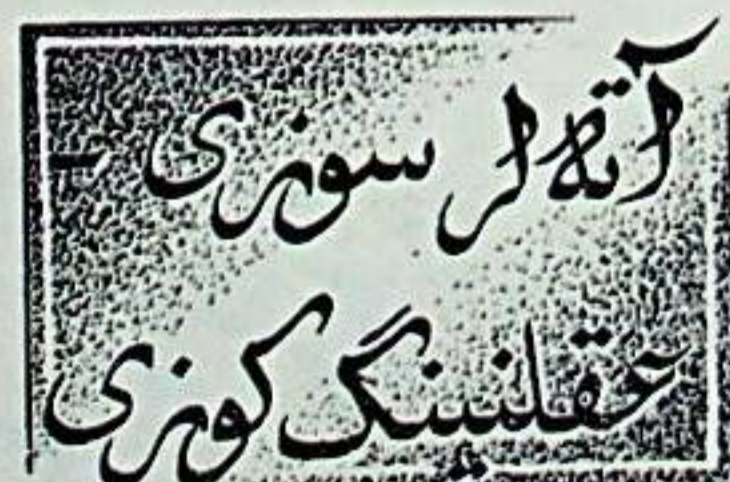 آته‌لر سوزی -
عقلنینگ کوزی